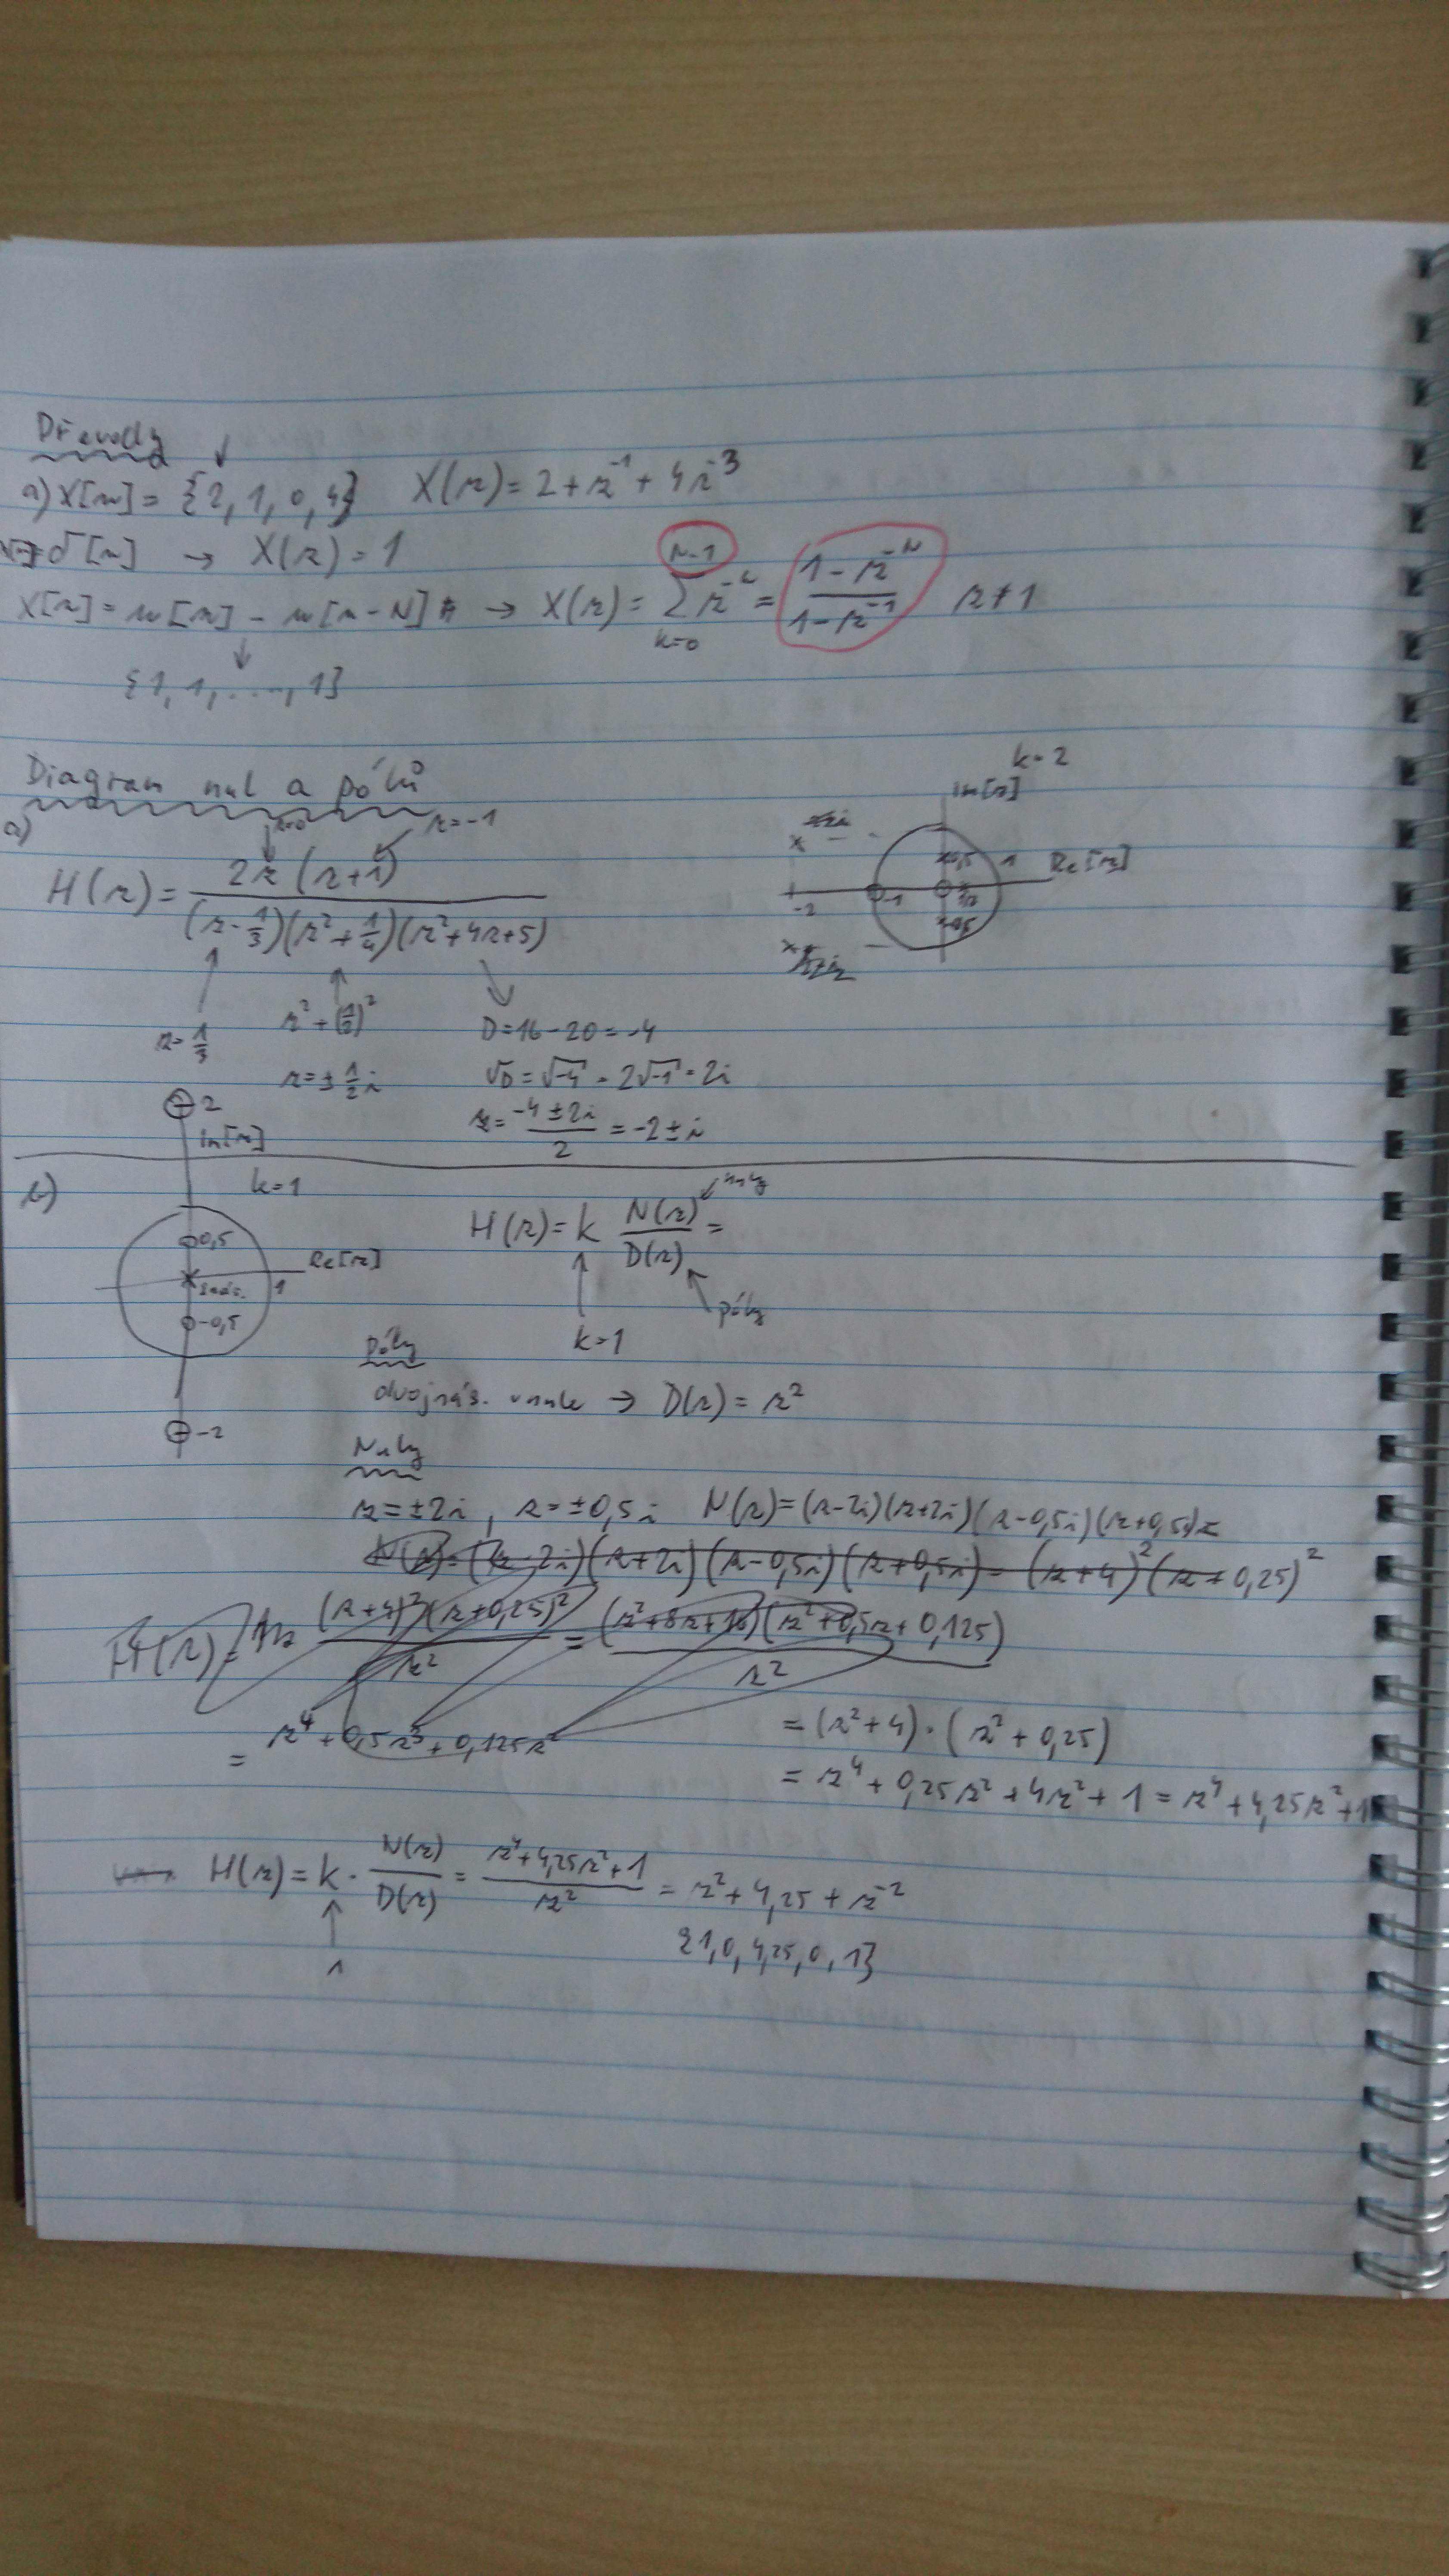 Převody
↓
a) X[n] = {2, 1, 0, 4} X(z) = 2 + z⁻¹ + 4z⁻³
δ[n] → X(z) = 1
X[n] = u[n] - u[n-N] → X(z) = Σ_{k=0}^{N-1} z⁻ᵏ = (1 - z⁻ᴺ)/(1 - z⁻¹) z ≠ 1
↓
{1, 1, ...., 1}
Diagram nul a pólů
a)
z=0 z=-1
H(z) = 2z(z+1) / ((z-1/3)(z²+1/4)(z²+4z+5))
k=2
Im[z]
Re[z]
-2 -1 1
z = 1/3
z² + (1/2)²
z = ± 1/2 i
D = 16 - 20 = -4
√D = √-4 = 2√-1 = 2i
z = (-4 ± 2i)/2 = -2 ± i
b)
2
Im[z]
k=1
0,5
Re[z]
1
-0,5
-2
H(z) = k N(z)/D(z) =
nuly
póly
k=1
Póly
dvojnás. v nule → D(z) = z²
Nuly
z = ±2i, z = ±0,5i N(z) = (z-2i)(z+2i)(z-0,5i)(z+0,5i) =
N(z) = (z-2i)(z+2i)(z-0,5i)(z+0,5i) = (z+4)²(z+0,25)²
H(z) = (z+4)²(z+0,25)² / z² = (z²+8z+16)(z²+0,5z+0,125) / z²
= z⁴ + 0,5z³ + 0,125z²
= (z²+4)·(z²+0,25)
= z⁴ + 0,25z² + 4z² + 1 = z⁴ + 4,25z² + 1
H(z) = k · N(z)/D(z) = (z⁴+4,25z²+1)/z² = z² + 4,25 + z⁻²
1
{1, 0, 4,25, 0, 1}